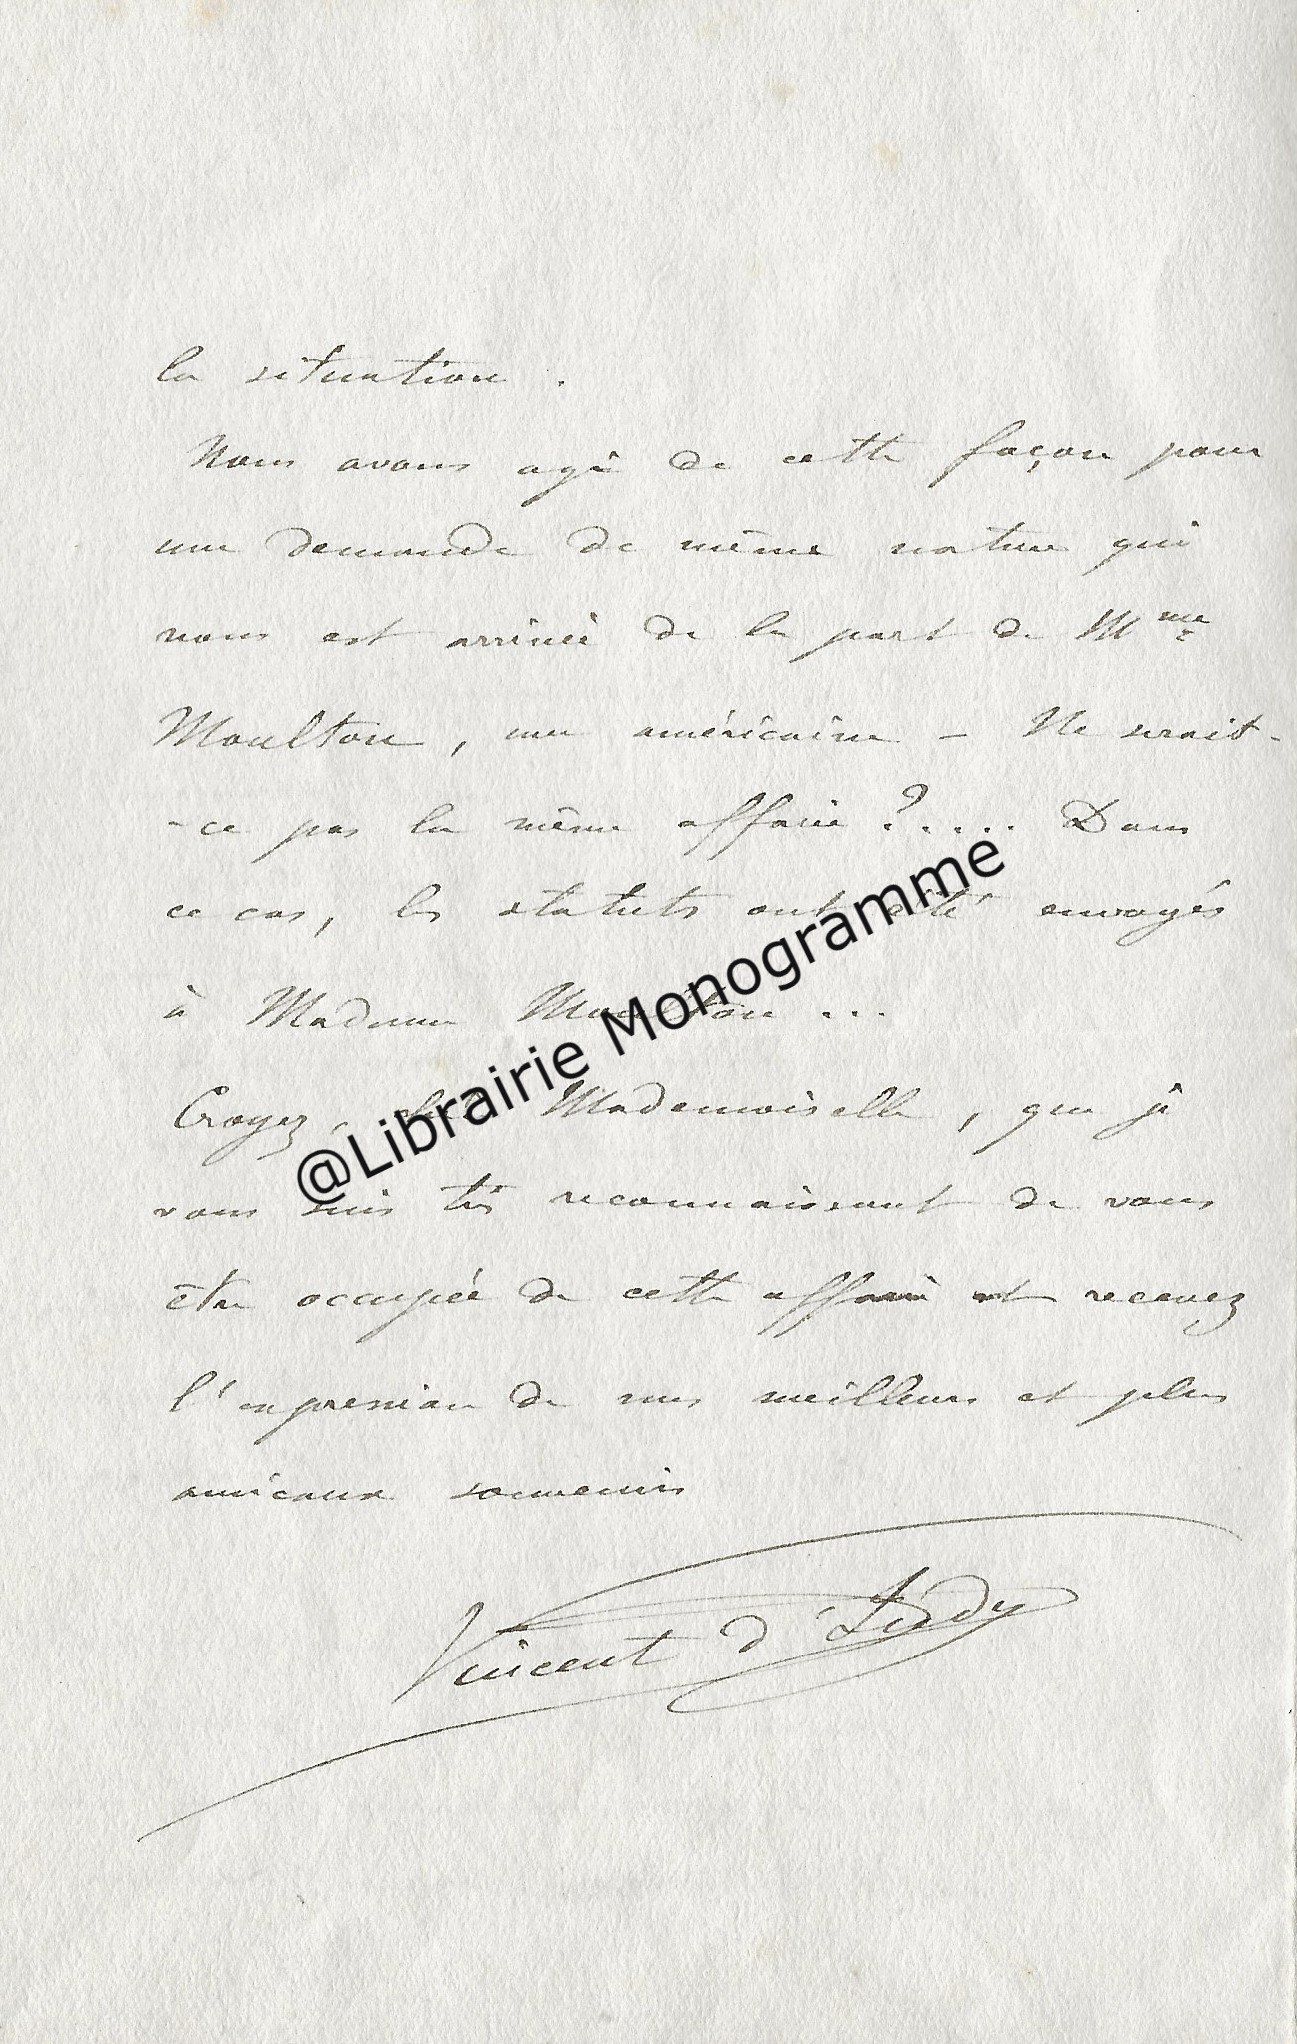 la situation .
Nous avons agi de cette façon pour
une demande de même nature qui
nous est arrivée de la part de Mme
Moulton, une américaine – Ne serait-
-ce pas la même affaire ?.... Dans
ce cas, les statuts ont été envoyés
à Madame Moulton ...
Croyez, chère Mademoiselle, que je
vous suis très reconnaissant de vous
être occupée de cette affaire et recevez
l'expression de mes meilleurs et plus
amicaux souvenirs
Vincent d'Indy
@Librairie Monogramme